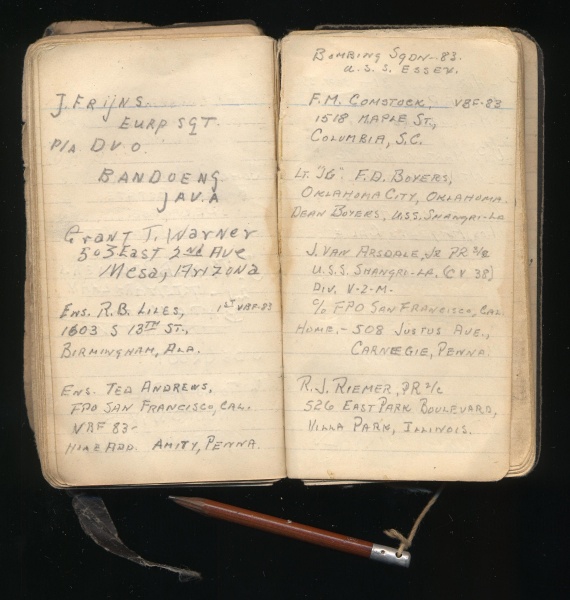 J. Frijns.
EURP SGT.
P/A DVO
BANDOENG
JAVA
Grant T. Warner
503 East 2nd Ave
Mesa, Arizona
Ens. R.B. Liles, 1st VBF-83
1603 S 13TH St.,
Birmingham, Ala.
Ens. Ted Andrews,
FPO San Francisco, Cal.
VBF 83-
Home Add. Amity, Penna.
Bombing Sqdn-83.
U.S.S. Essex.
F.M. Comstock, VBF-83
1518 Maple St.,
Columbia, S.C.
Lt. "JG" F.D. Boyers,
Oklahoma City, Oklahoma.
Dean Boyers, U.S.S. Shangri-La
J. Van Arsdale, Jr PR 3/c
U.S.S. Shangri-La. (CV 38)
Div. V-2-M-
c/o FPO San Francisco, Cal.
Home.- 508 Justus Ave.,
Carnegie, Penna.
R.J. Riemer, PR 2/c
526 East Park Boulevard,
Villa Park, Illinois.